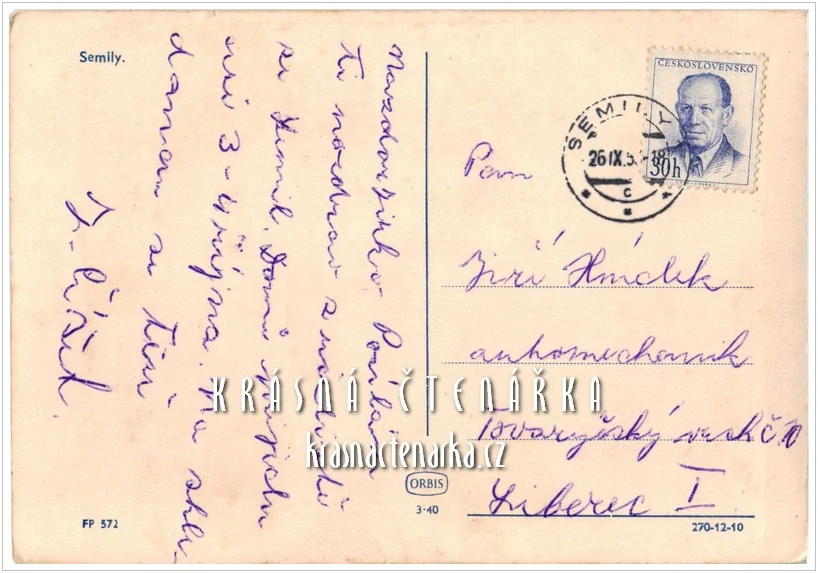 Semily.
Nazdar Jirko. Posílám
ti pozdrav z
ze Semil. Domů přijedu
asi 3-4 října. Na shle-
danou se těší
J. Čížek.
ČESKOSLOVENSKO
30h
SEMILY
26.IX.5 -18
c
Pan
Jiří Hnídek
automechanik
Tovaryšský vrch č 10
Liberec I.
KRÁSNÁ ČTENÁŘKA
krasnactenarka.cz
ORBIS
3·40
FP 572
270-12-10